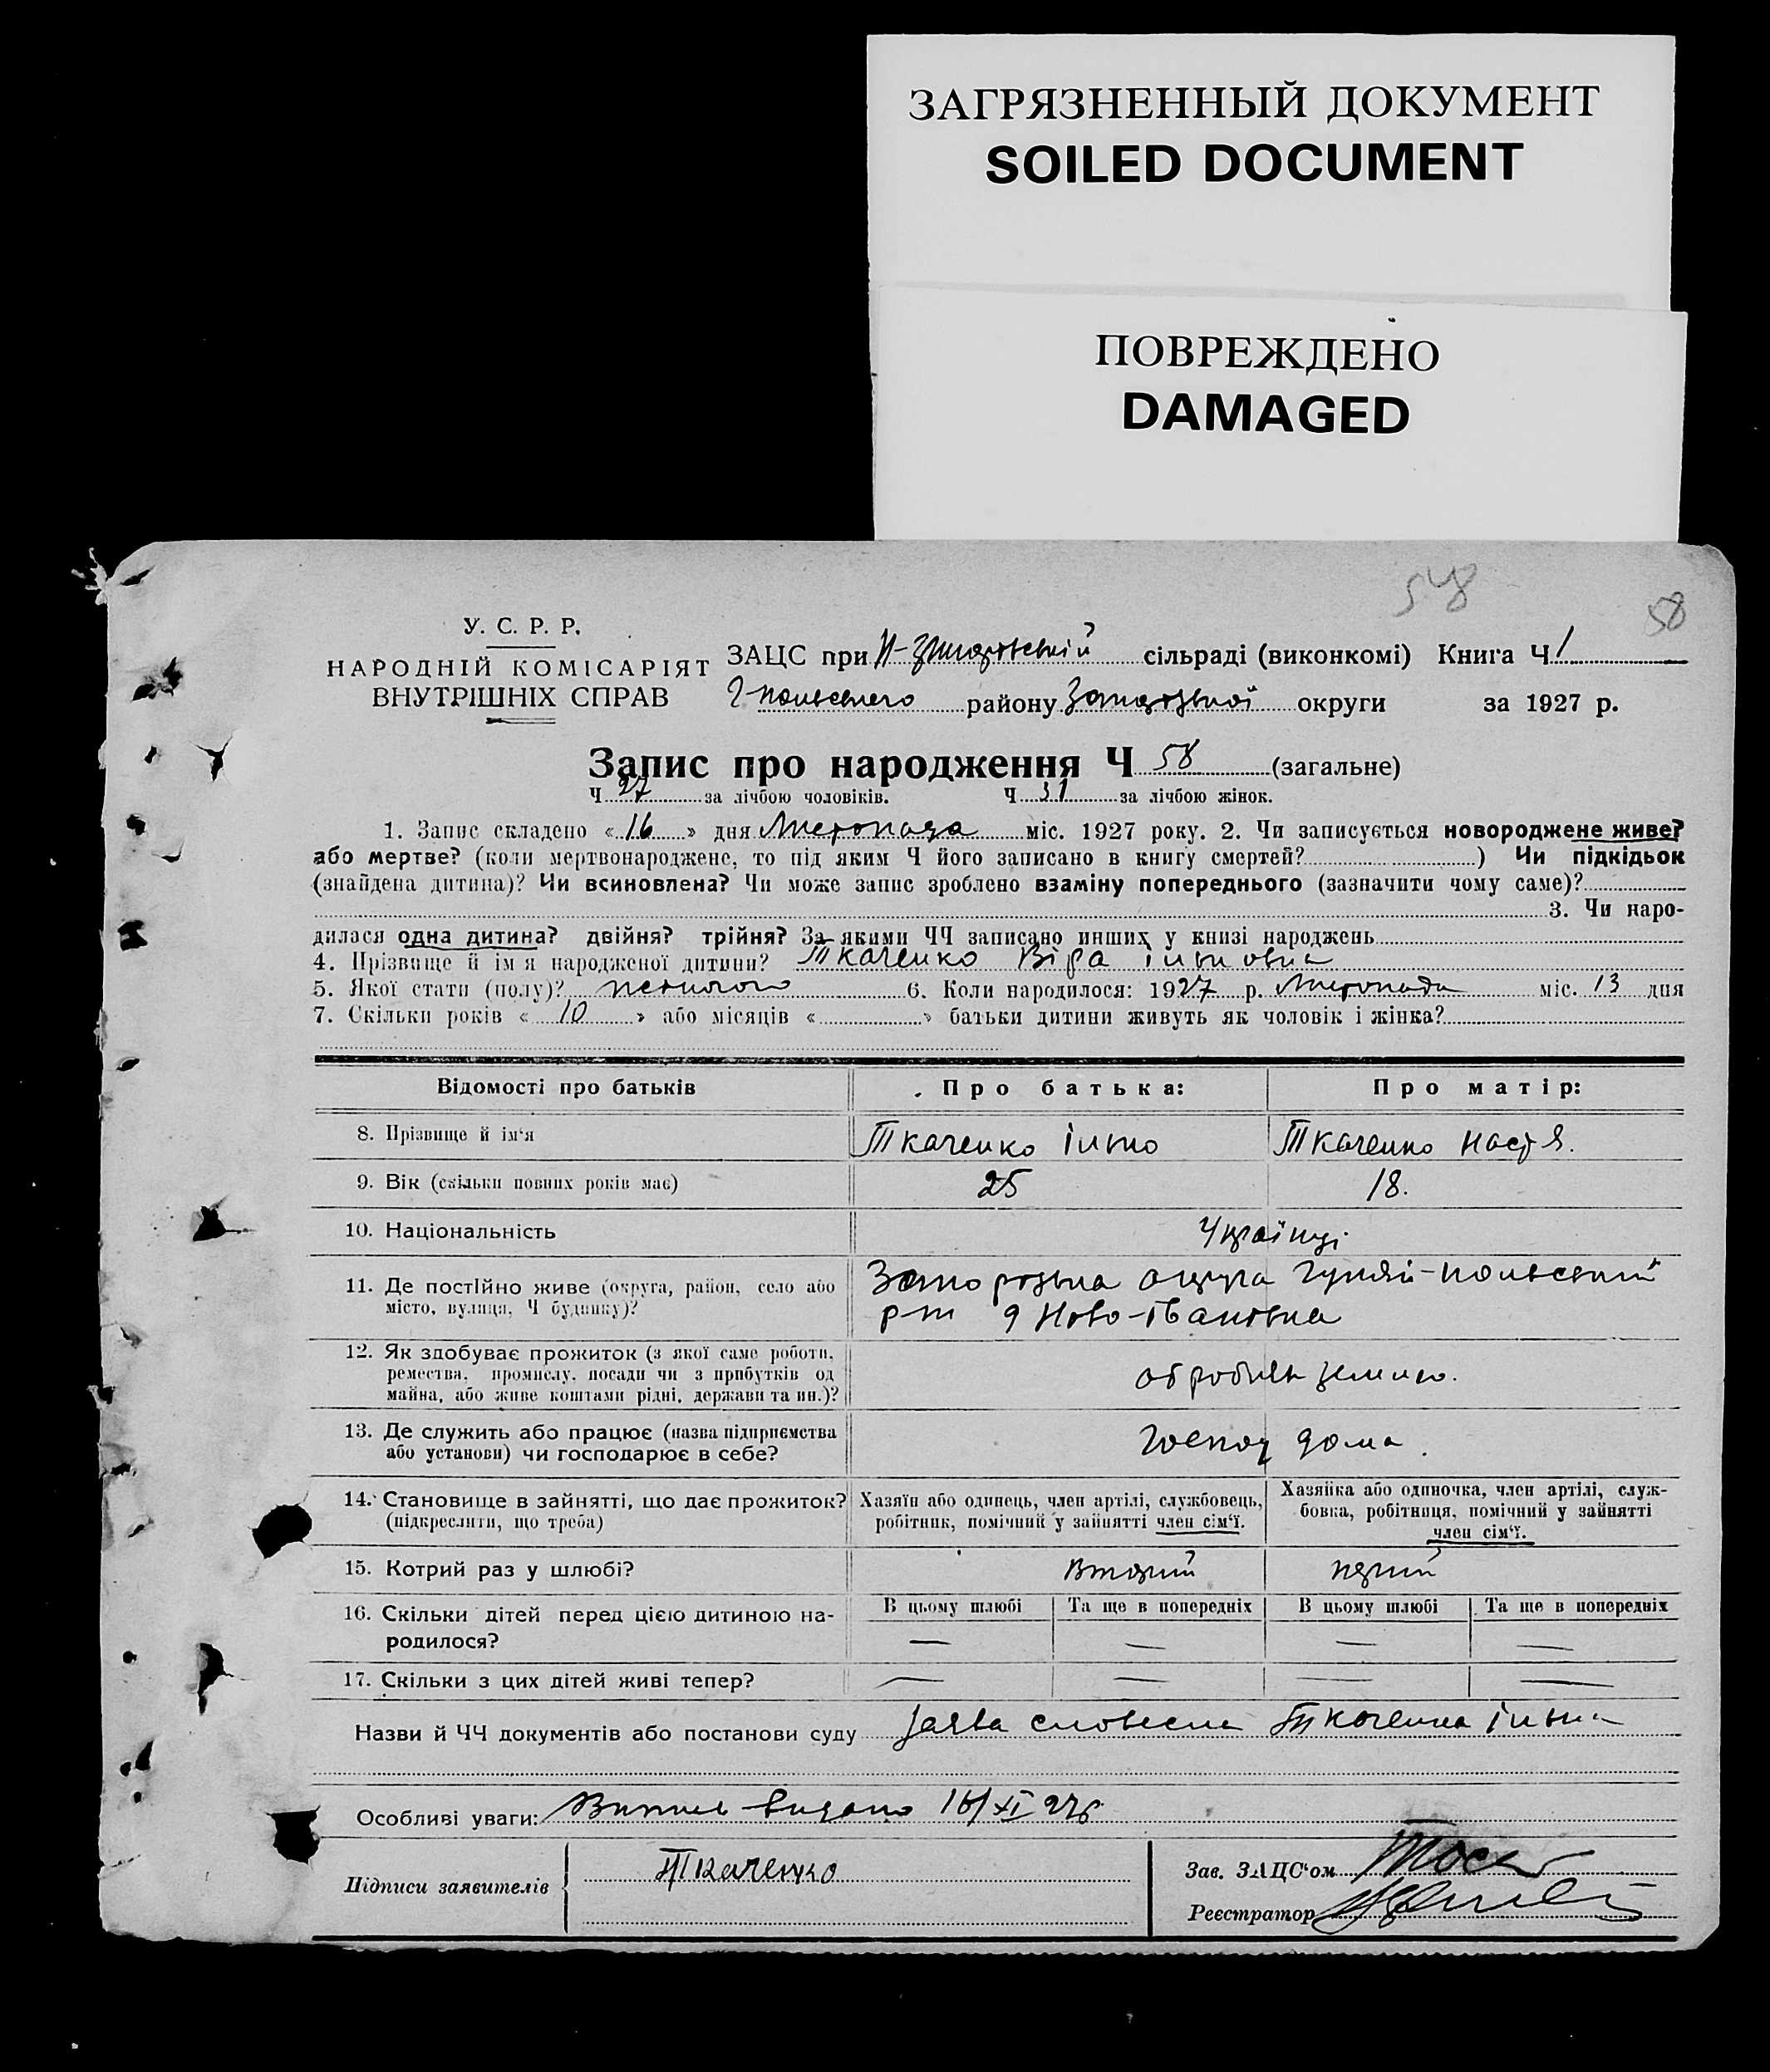 ЗАГРЯЗНЕННЫЙ ДОКУМЕНТ
SOILED DOCUMENT
ПОВРЕЖДЕНО
DAMAGED
548
58
У. С. Р. Р.
НАРОДНІЙ КОМІСАРІЯТ
ВНУТРІШНІХ СПРАВ
ЗАЦС при сільраді (виконкомі) Книга Ч 1
Г-польского району Запорізької округи за 1927 р.
Запис про народження Ч 58 (загальне)
Ч 27 за лічбою чоловіків. Ч 31 за лічбою жінок.
1. Запис складено «16» дня Листопада міс. 1927 року. 2. Чи записується новороджене живе?
або мертве? (коли мертвонароджене, то під яким Ч його записано в книгу смертей? ) Чи підкідьок
(знайдена дитина)? Чи всиновлена? Чи може запис зроблено взаміну попереднього (зазначити чому саме)?
3. Чи наро-
дилася одна дитина? двійня? трійня? За якими ЧЧ записано инших у книзі народжень
4. Прізвище й ім я народженої дитини? Ткаченко Віра Ільновна
5. Якої стати (полу)? 6. Коли народилося: 1927 р. Листопада міс. 13 дня
7. Скільки років «10» або місяців « » батьки дитини живуть як чоловік і жінка?
Відомості про батьків
Про батька:
Про матір:
8. Прізвище й ім‘я
Ткаченко Ілько
Ткаченко Настя.
9. Вік (скільки повних років має)
25
18.
10. Національність
Українці
11. Де постійно живе (округа, район, село або
місто, вулиця, Ч будинку)?
Запорізька округа Гуляй-польський
р-н Ново-Івановка
12. Як здобуває прожиток (з якої саме роботи,
ремества, промислу, посади чи з прибутків од
майна, або живе коштами рідні, держави та ин.)?
обробляє землю.
13. Де служить або працює (назва підприємства
або установи) чи господарює в себе?
Господ дома.
14. Становище в зайнятті, що дає прожиток?
(підкреслити, що треба)
Хазяїн або одинець, член артілі, службовець,
робітник, помічний у зайнятті член сім‘ї.
Хазяйка або одиночка, член артілі, служ-
бовка, робітниця, помічний у зайнятті
член сім‘ї.
15. Котрий раз у шлюбі?
Вторий
перший
16. Скільки дітей перед цією дитиною на-
родилося?
В цьому шлюбі
Та ще в попередніх
В цьому шлюбі
Та ще в попередніх
— — — —
17. Скільки з цих дітей живі тепер?
— — — —
Назви й ЧЧ документів або постанови суду заява словесна Ткаченка Ілька
Особливі уваги: видано 16/XI 27р.
Підписи заявителів
Ткаченко
Зав. ЗАЦС‘ом
Реєстратор